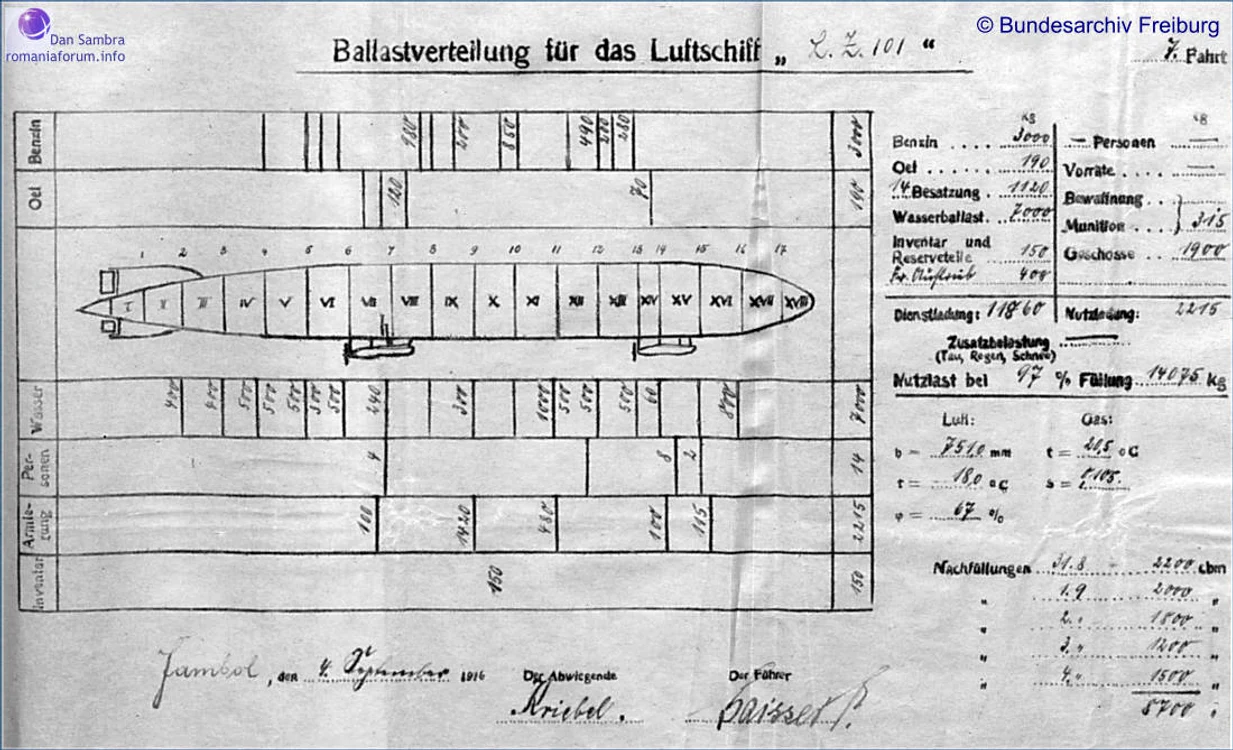 Dan Sambra
romaniaforum.info
© Bundesarchiv Freiburg
Ballastverteilung für das Luftschiff „ L. Z. 101 “
7. Fahrt
Benzin 980 200 850 490 200 280 3000
Oel 120 70 190
1 2 3 4 5 6 7 8 9 10 11 12 13 14 15 16 17
I II III IV V VI VII VIII IX X XI XII XIII XIV XV XVI XVII XVIII
Wasser 400 400 500 500 500 500 500 240 300 1000 500 500 500 60 800 7000
Per-
sonen 4 8 2 14
Armie-
rung 100 1420 480 100 115 2215
Inventar 150 150
kg
Benzin .... 3000
Oel ....... 190
14 Besatzung . 1120
Wasserballast. 7000
Inventar und
Reserveteile 150
400
Dienstladung: 11860
kg
— Personen —
Vorräte ... —
Bewaffnung ..
Munition ... } 315
Geschosse .. 1900
Nutzladung: 2215
Zusatzbelastung —
(Tau, Regen, Schnee)
Nutzlast bei 97 % Füllung 14075 kg
Luft: Gas:
b = 751,0 mm t = 20,5 °C
t = 18,0 °C s =
φ = 67 %
Nachfüllungen 31.8 - 2200 cbm
„ 1.9 2000 „
„ 2. „ 1800 „
„ 3. „ 1200 „
„ 4. „ 1500 „
8700 „
Jambol, den 4. September 1916
Der Abwiegende Der Führer
Kriebel. Gaissert